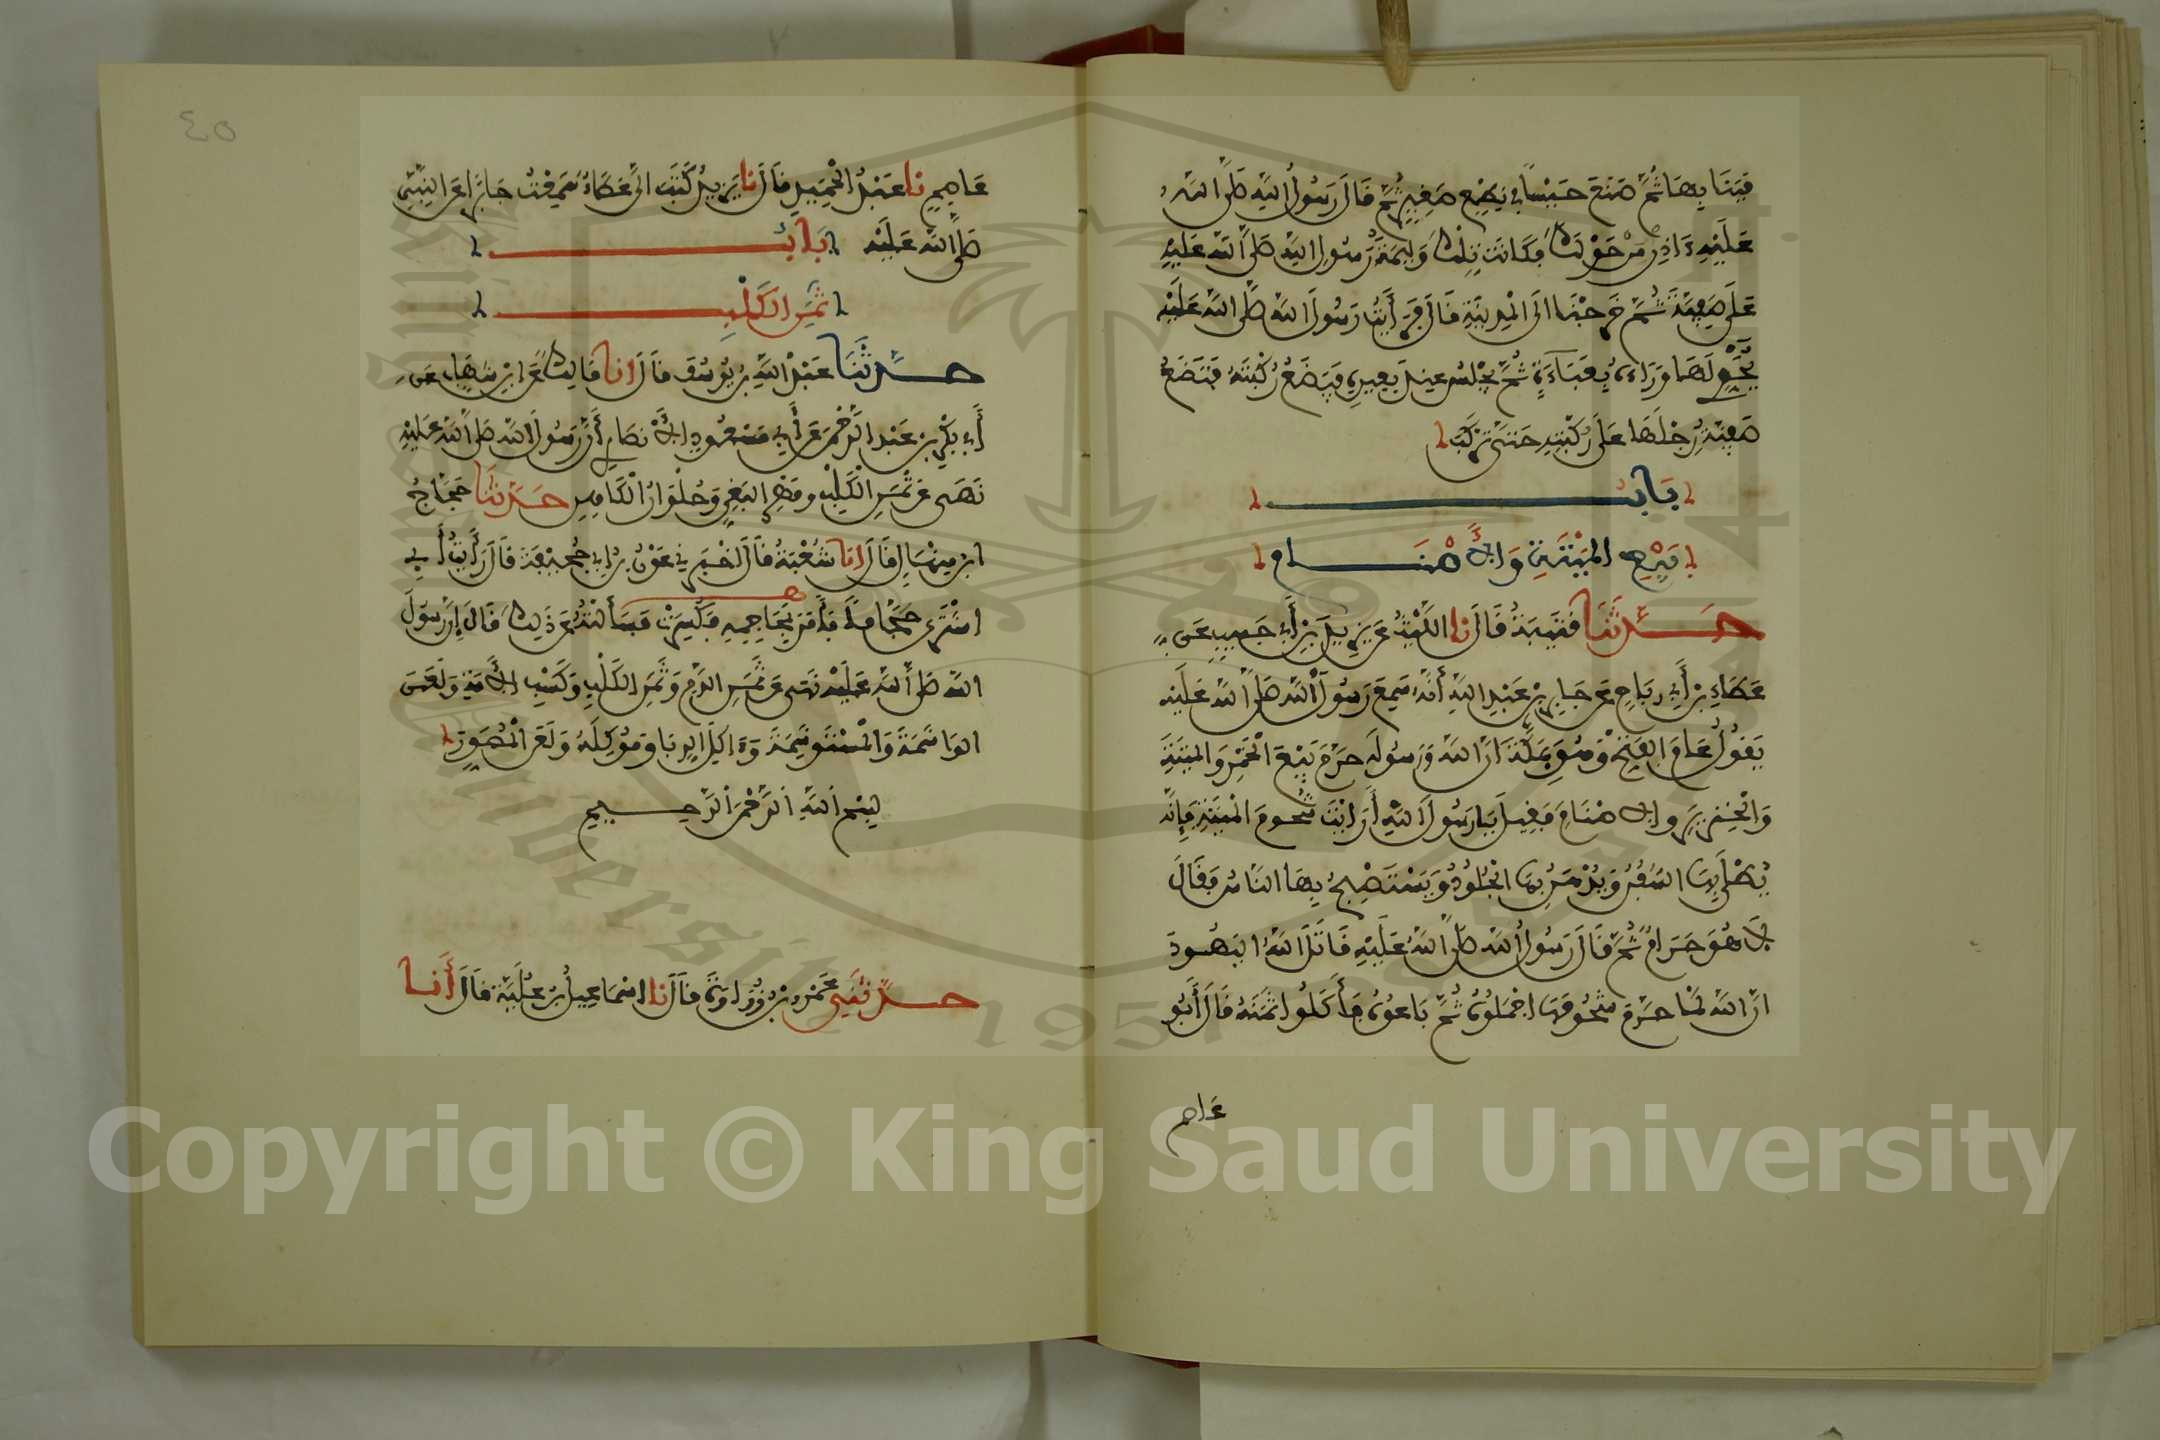 فبنا بها ثم صنع حيسا في نطع صغير ثم قال رسول الله صلى الله
عليه ءاذن من حولك فكانت تلك وليمة رسول الله صلى الله عليه
على صفية ثم خرجنا الى المدينة قال فرأيت رسول الله صلى الله عليه
يحوي لها وراءه بعباءة ثم يجلس عند بعيره فيضع ركبته فتضع
صفية رجلها على ركبته حتى تركب
باب
بيع الميتة والاصنام
حدثنا قتيبة قال نا الليث عن يزيد بن أبي حبيب عن
عطاء بن أبي رباح عن جابر بن عبد الله أنه سمع رسول الله صلى الله عليه
يقول عام الفتح وهو بمكة ان الله ورسوله حرم بيع الخمر والميتة
والخنزير والاصنام فقيل يا رسول الله أرايت شحوم الميتة فإنه
يطلى بها السفن ويدهن بها الجلود ويستصبح بها الناس فقال
لا هو حرام ثم قال رسول الله صلى الله عليه قاتل الله اليهود
ان الله لما حرم شحومها اجملوه ثم باعوه فأكلوا ثمنه قال أبو
عاصم
٤٥
عاصم نا عبد الحميد قال نا يزيد كتب الى عطاء سمعت جابرا عن النبي
صلى الله عليه باب
ثمن الكلب
حدثنا عبد الله بن يوسف قال انا مالك عن ابن شهاب عن
أبي بكر بن عبد الرحمن عن أبي مسعود الانصاري أن رسول الله صلى الله عليه
نهى عن ثمن الكلب ومهر البغي وحلوان الكاهن حدثنا حجاج
ابن منهال قال انا شعبة قال اخبرني عون بن ابي جحيفة قال رأيت أبي
اشترى حجاما فأمر بمحاجمه فكسرت فسألته عن ذلك قال إن رسول
الله صلى الله عليه نهى عن ثمن الدم وثمن الكلب وكسب الامة ولعن
الواشمة والمستوشمة وءاكل الربا وموكله ولعن المصور
بسم الله الرحمن الرحيم
حدثني عمرو بن زرارة قال نا اسماعيل بن علية قال أنا
Copyright © King Saud University
1957